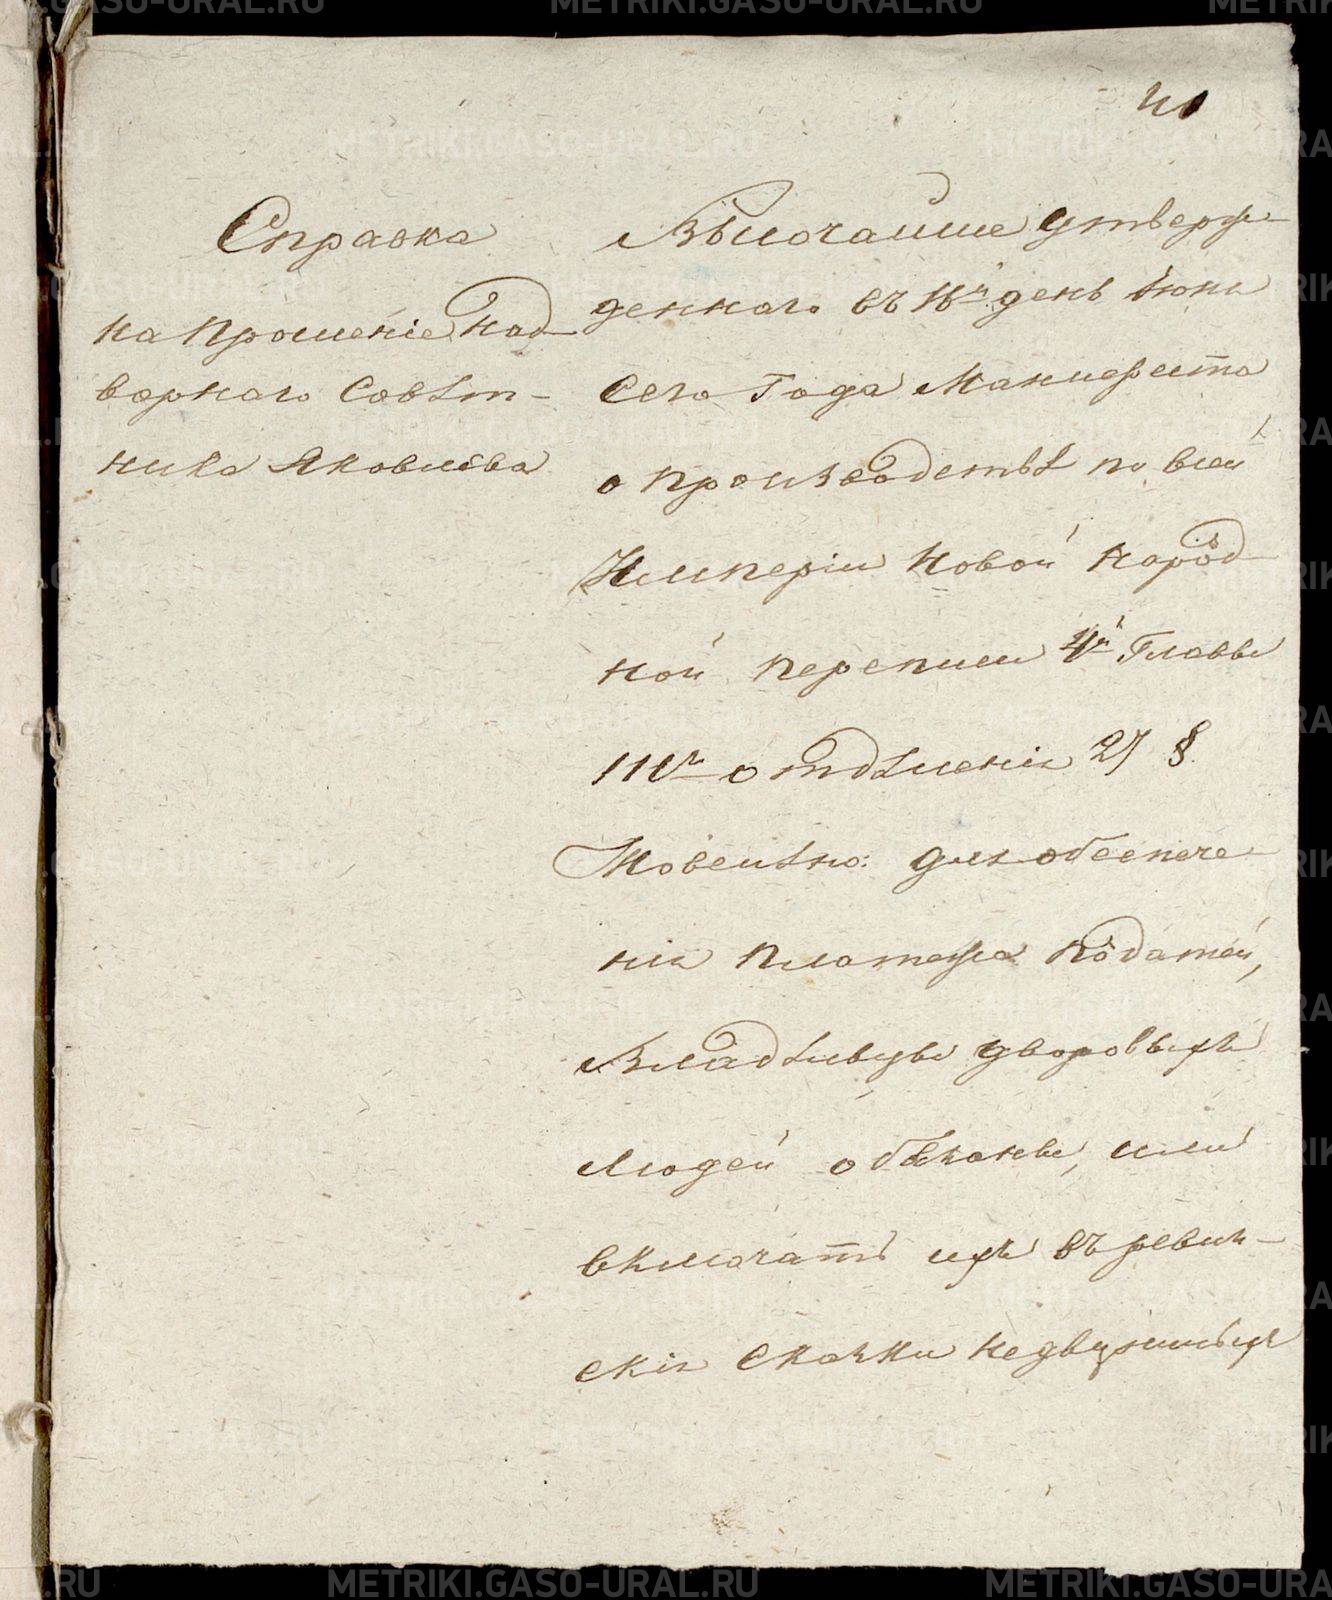 40
Справка
на прошеніе над-
ворнаго Совѣт-
ника Яковлева
Высочайше утверж-
деннаго въ 16й день Іюня
сего Года Манифеста
о производствѣ по всей
Имперіи новой народ-
ной переписи 4й Главы
III го отдѣленія 27 §.
Имянно: для обеспече-
нія платежа податей,
Владѣльцы дворовыхъ
людей обязаны, или
включать ихъ въ ревиж-
скія скаски недвижимыхъ
METRIKI.GASO-URAL.RU